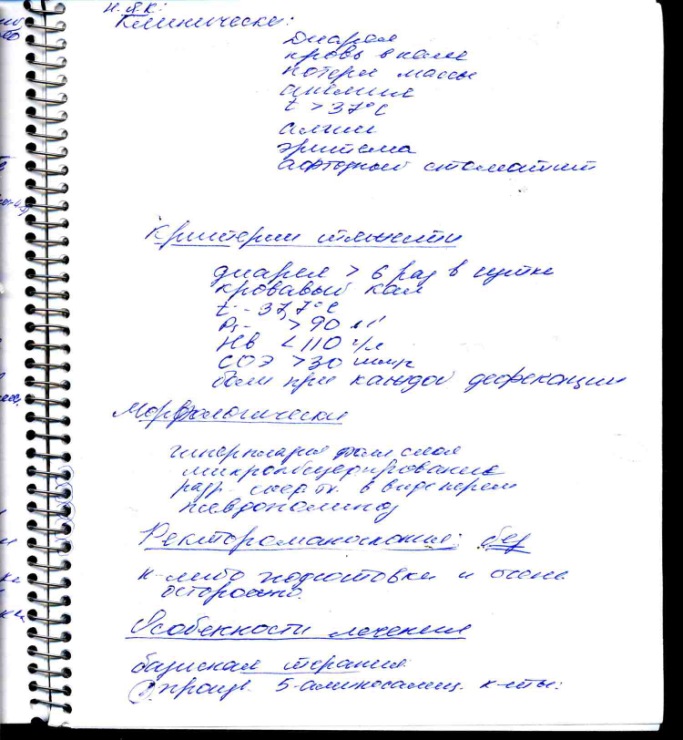 Н.Я.К:
Клинически:
Диарея
кровь в кале
потеря массы
анемия
t > 37°C
алгии
эритема
афтозный стоматит
Критерии тяжести
диарея > 6 раз в сутки
кровавый кал
t - 37,7°C
Ps - > 90
Hв < 110 г/л
СОЭ > 30 мм/ч
боли при каждой дефекации
Морфологически
гиперплазия слоя
микроабсцедирование
в виде
псевдополипоз
Ректороманоскопия: без
к-либо подготовки и очень
осторожно.
Особенности лечения
базисная терапия
произв. 5-аминосалиц. к-ты: